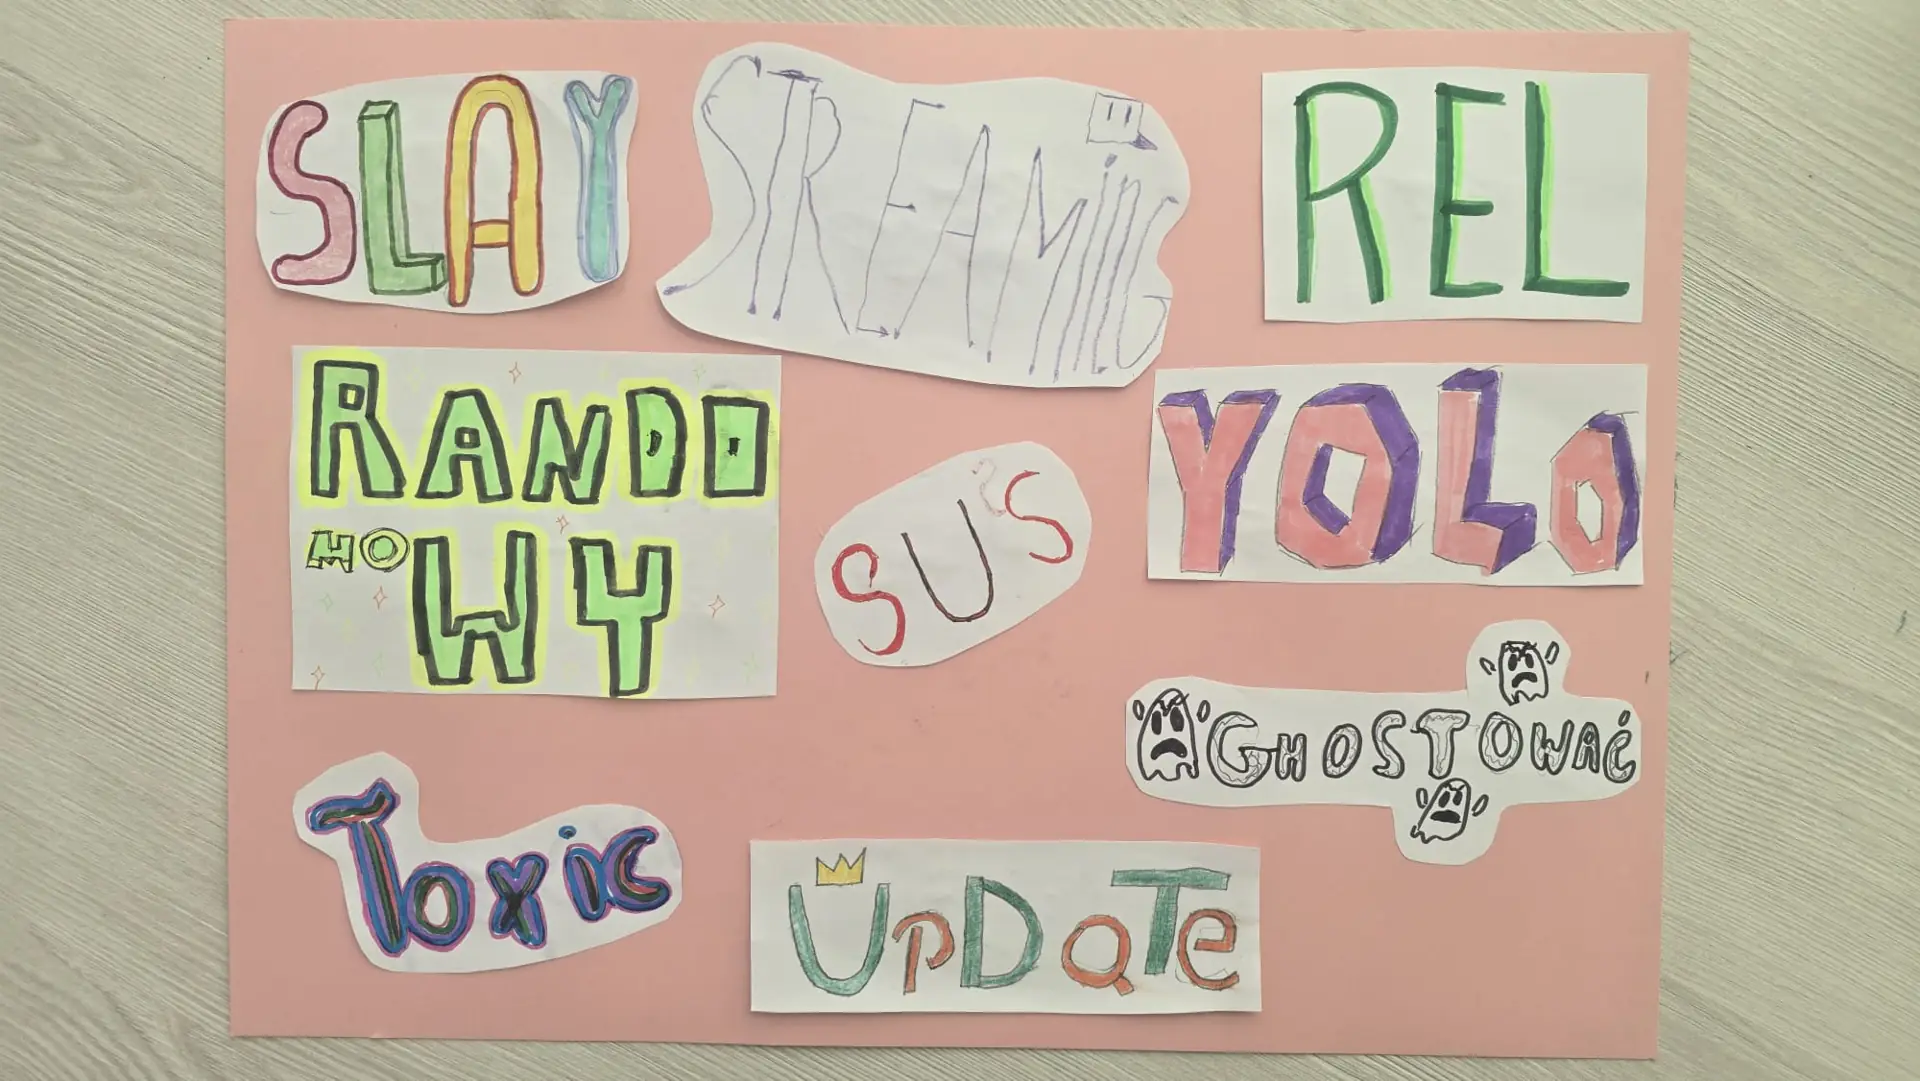 SLAY
STREAMinG
REL
RANDO
MO WY
SUS
YOLO
GHOSTOWAĆ
Toxic
UpDaTe